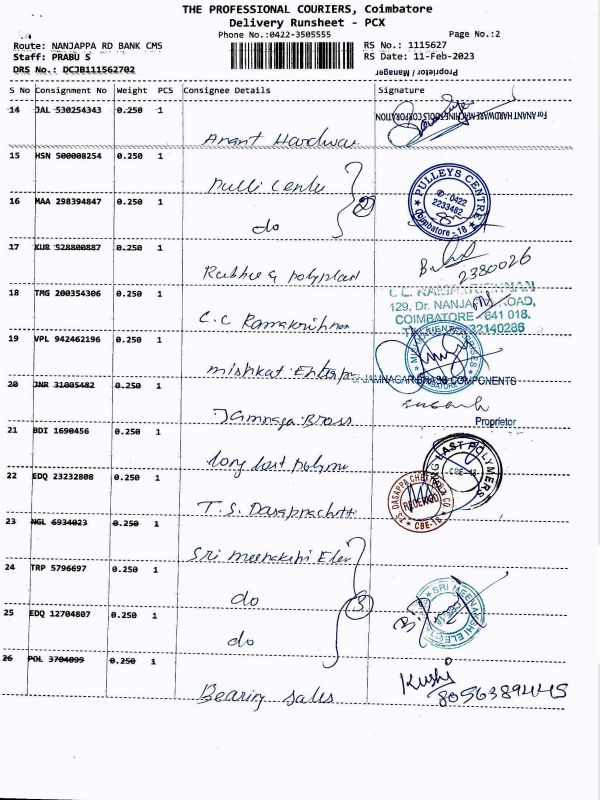 THE PROFESSIONAL COURIERS, Coimbatore
Delivery Runsheet - PCX
Phone No.:0422-3505555 Page No.:2
Route: NANJAPPA RD BANK CMS RS No.: 1115627
Staff: PRABU S RS Date: 11-Feb-2023
DRS No.: DCJB111562702 Proprietor / Manager
S No Consignment No Weight PCS Consignee Details Signature
14 JAL 530254343 0.250 1
For ANANT HARDWARE MACHINE TOOLS CORPORATION
Anant Hardwar
15 HSN 500008254 0.250 1
Pulli Centre
PULLEYS CENTRE
0422
2233482
Coimbatore - 18
16 MAA 298394847 0.250 1 2
do
17 KUR 528800887 0.250 1
2380026
18 TMG 200354306 0.250 1
129, Dr. NANJAPPA ROAD,
COIMBATORE - 641 018.
32140286
C.C Ramakrishnan
19 VPL 942462196 0.250 1
mishkat Enterpr
20 JNR 31005482 0.250 1
JAMNAGAR BRASS COMPONENTS
Proprietor
Jamnaga Brass
21 BDI 1690456 0.250 1
long last polyme
LAST POLYMERS
CBE-18
22 EDQ 23232808 0.250 1
T.S. DASAPPA CHETTIAR CO.
RECEIVED
CBE-18
T.S. Dasappachetti
23 NGL 6934023 0.250 1
Sri meenakshi Elec
24 TRP 5796697 0.250 1
do 3
SRI MEENAKSHI ELECT
25 EDQ 12704807 0.250 1
do
26 POL 3704099 0.250 1
Kushi
8056389445
Bearing sales